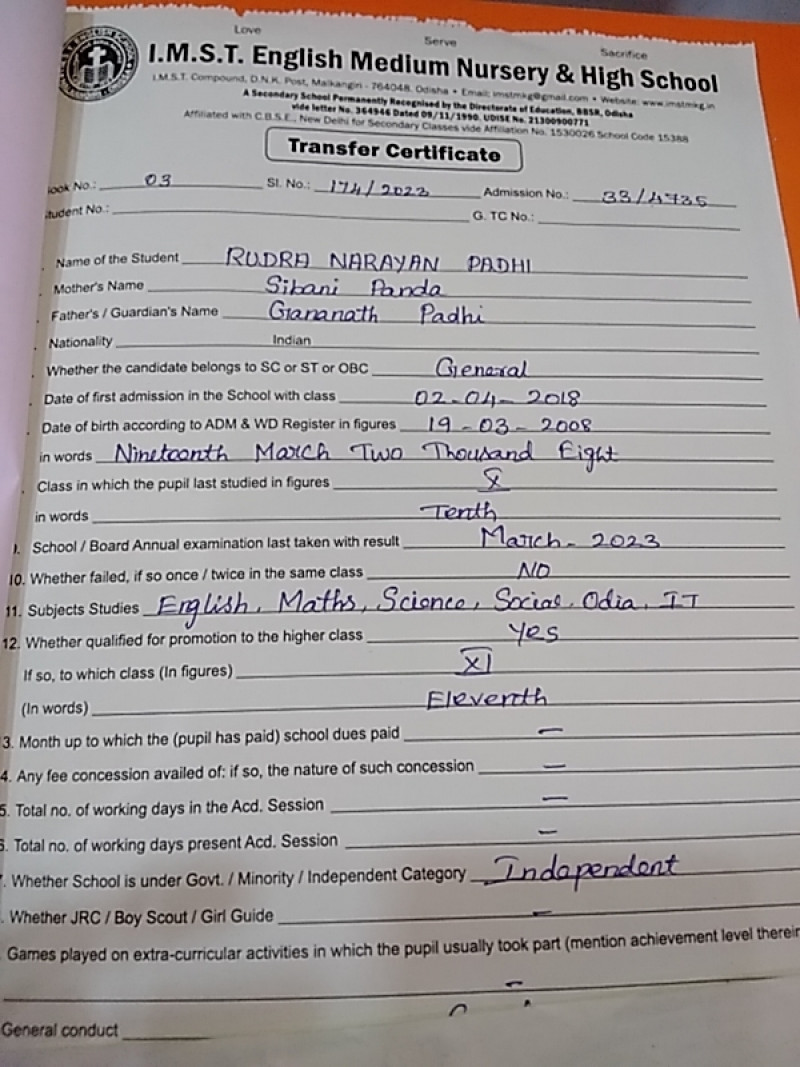 Love Serve Sacrifice
I.M.S.T. English Medium Nursery & High School
I.M.S.T. Compound, D.N.K. Post, Malkangiri - 764048, Odisha • Email: imstmkg@gmail.com • Website: www.imstmkg.in
A Secondary School Permanently Recognised by the Directorate of Education, BBSR, Odisha
vide letter No. 364946 Dated 09/11/1990. UDISE No. 21300900771
Affiliated with C.B.S.E., New Delhi for Secondary Classes vide Affiliation No. 1530026 School Code 15388
Transfer Certificate
ook No.: 03 Sl. No.: 174/2023 Admission No.: 33/4735
tudent No.: G. TC No.:
Name of the Student RUDRA NARAYAN PADHI
Mother's Name Sibani Panda
Father's / Guardian's Name Gananath Padhi
Nationality Indian
Whether the candidate belongs to SC or ST or OBC General
Date of first admission in the School with class 02-04-2018
Date of birth according to ADM & WD Register in figures 19-03-2008
in words Nineteenth March Two Thousand Eight
Class in which the pupil last studied in figures X
in words Tenth
School / Board Annual examination last taken with result March-2023
10. Whether failed, if so once / twice in the same class NO
11. Subjects Studies English, Maths, Science, Social, Odia, IT
12. Whether qualified for promotion to the higher class Yes
If so, to which class (In figures) XI
(In words) Eleventh
3. Month up to which the (pupil has paid) school dues paid —
4. Any fee concession availed of: if so, the nature of such concession —
5. Total no. of working days in the Acd. Session —
6. Total no. of working days present Acd. Session —
. Whether School is under Govt. / Minority / Independent Category Independent
. Whether JRC / Boy Scout / Girl Guide —
Games played on extra-curricular activities in which the pupil usually took part (mention achievement level therein
—
General conduct